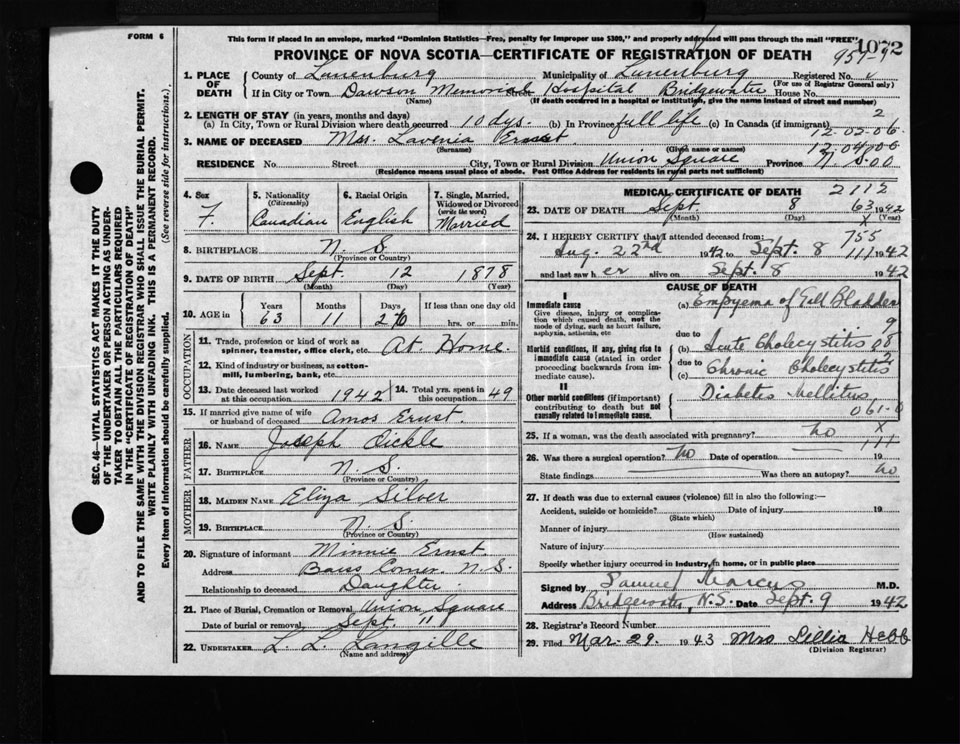 FORM 6
This form if placed in an envelope, marked "Dominion Statistics—Free, penalty for improper use $300," and properly addressed will pass through the mail "FREE"
1072
PROVINCE OF NOVA SCOTIA—CERTIFICATE OF REGISTRATION OF DEATH
957-9
1. PLACE OF DEATH
County of Lunenburg Municipality of Lunenburg Registered No.
(For use of Registrar General only)
If in City or Town Dawson Memorial Street Hospital Bridgewater House No.
(Name) (If death occurred in a hospital or institution, give the name instead of street and number)
2. LENGTH OF STAY (in years, months and days)
2
(a) In City, Town or Rural Division where death occurred 10 dys. (b) In Province full life (c) In Canada (if immigrant)
12-02-06
3. NAME OF DECEASED Mrs. Lavenia Ernst
(Surname) (Given name or names)
12-04-06
RESIDENCE No. Street City, Town or Rural Division Union Square Province
(Residence means usual place of abode. Post Office Address for residents in rural parts not sufficient)
4. Sex
F.
5. Nationality
(Citizenship)
Canadian
6. Racial Origin
English
7. Single, Married, Widowed or Divorced
(write the word)
Married
8. BIRTHPLACE N. S.
(Province or Country)
9. DATE OF BIRTH Sept. 12 1878
(Month) (Day) (Year)
10. AGE in
Years Months Days If less than one day old
63 11 hrs. or min.
OCCUPATION
11. Trade, profession or kind of work as spinner, teamster, office clerk, etc. At Home.
12. Kind of industry or business, as cotton-mill, lumbering, bank, etc.
13. Date deceased last worked at this occupation 1942
14. Total yrs. spent in this occupation 49
15. If married give name of wife or husband of deceased Amos Ernst
FATHER
16. NAME Joseph Dickle
17. BIRTHPLACE N. S.
(Province or Country)
MOTHER
18. MAIDEN NAME Eliza Silver
19. BIRTHPLACE N. S.
(Province or Country)
20. Signature of informant Minnie Ernst
Address Corner N. S.
Relationship to deceased Daughter
21. Place of Burial, Cremation or Removal Union Square
Date of burial or removal Sept. 11
22. UNDERTAKER L. L. Langille
(Name and address)
MEDICAL CERTIFICATE OF DEATH
2112
23. DATE OF DEATH Sept. 8 1942
63
(Month) (Day) (Year)
x
24. I HEREBY CERTIFY that I attended deceased from:
755
Aug. 22nd 1942 to Sept. 8 1942
111
and last saw her alive on Sept. 8 1942
CAUSE OF DEATH
I
Immediate cause
Give disease, injury or complication which caused death, not the mode of dying, such as heart failure, asphyxia, asthenia, etc
(a) Empyema of Gall Bladder
9
due to
Morbid conditions, if any, giving rise to immediate cause (stated in order proceeding backwards from immediate cause).
(b) Acute Cholecystitis
08
due to
2
(c) Chronic Cholecystitis
II
Other morbid conditions (if important) contributing to death but not causally related to immediate cause.
Diabetes Mellitus
061-0
25. If a woman, was the death associated with pregnancy? No
x
111
26. Was there a surgical operation? No Date of operation 19
State findings Was there an autopsy? No
27. If death was due to external causes (violence) fill in also the following:—
Accident, suicide or homicide? Date of injury 19
(State which)
Manner of injury
(How sustained)
Nature of injury
Specify whether injury occurred in industry, in home, or in public place
Signed by Samuel Marcus M.D.
Address Bridgewater, N.S. Date Sept. 9 1942
28. Registrar's Record Number
29. Filed Mar. 29. 1943 Mrs Lillia Hebb
(Division Registrar)
SEC. 46—VITAL STATISTICS ACT MAKES IT THE DUTY
OF THE UNDERTAKER OR PERSON ACTING AS UNDER-
TAKER TO OBTAIN ALL THE PARTICULARS REQUIRED
IN THE "CERTIFICATE OF REGISTRATION OF DEATH"
AND TO FILE THE SAME WITH THE DIVISION REGISTRAR WHO SHALL ISSUE THE BURIAL PERMIT.
WRITE PLAINLY WITH UNFADING INK. THIS IS A PERMANENT RECORD.
Every item of information should be carefully supplied. (See reverse side for instructions.)